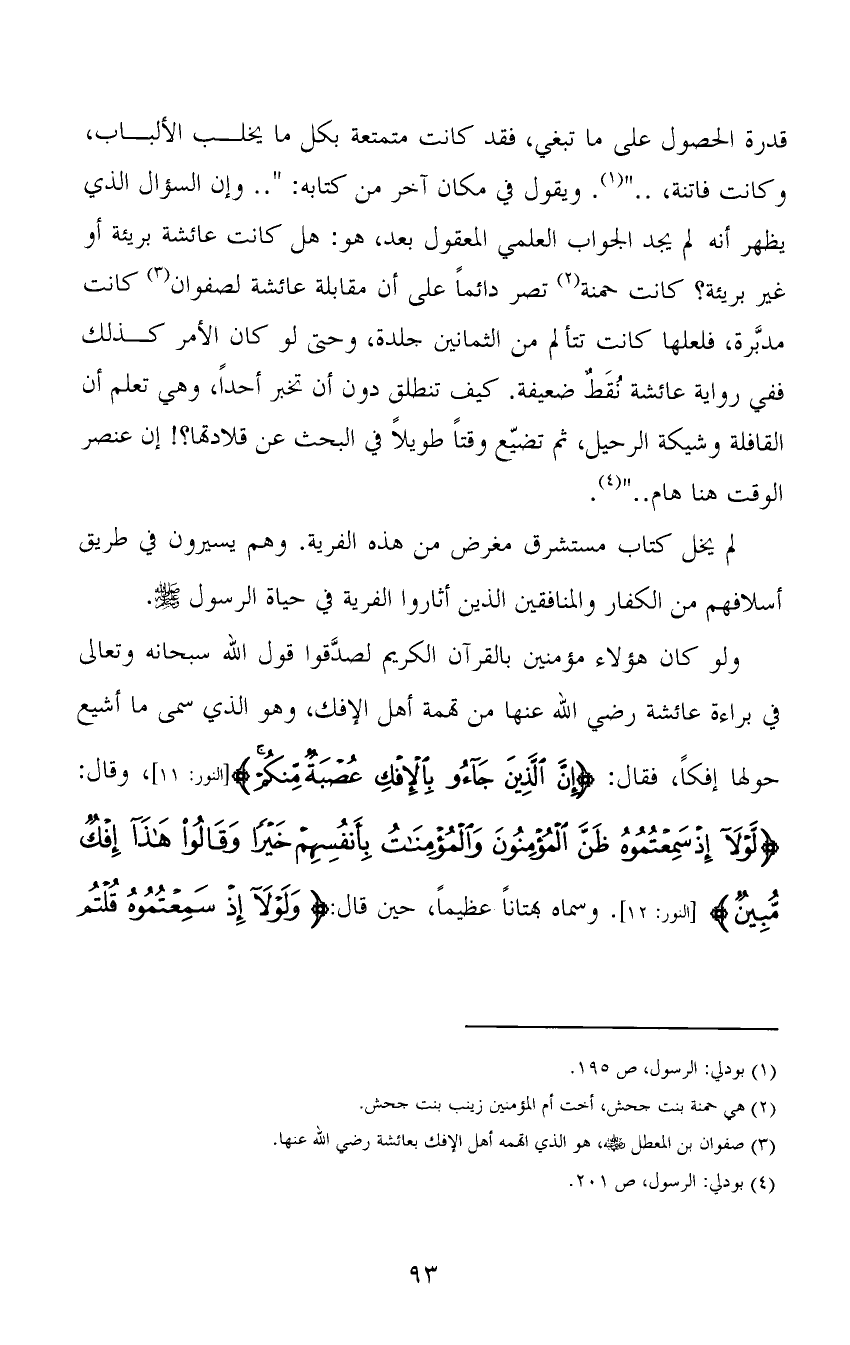 قدرة الحصول على ما تبغي، فقد كانت متمتعة بكل ما يخلـــب الألبـــاب،
وكانت فاتنة، .."(١). ويقول في مكان آخر من كتابه: ".. وإن السؤال الذي
يظهر أنه لم يجد الجواب العلمي المعقول بعد، هو: هل كانت عائشة بريئة أو
غير بريئة؟ كانت حمنة(٢) تصر دائماً على أن مقابلة عائشة لصفوان(٣) كانت
مدبَّرة، فلعلها كانت تتألم من الثمانين جلدة، وحتى لو كان الأمر كـــذلك
ففي رواية عائشة نُقَطٌ ضعيفة. كيف تنطلق دون أن تخبر أحداً، وهي تعلم أن
القافلة وشيكة الرحيل، ثم تضيّع وقتاً طويلاً في البحث عن قلادتها؟! إن عنصر
الوقت هنا هام.."(٤).
لم يخل كتاب مستشرق مغرض من هذه الفرية. وهم يسيرون في طريق
أسلافهم من الكفار والمنافقين الذين أثاروا الفرية في حياة الرسول ﷺ.
ولو كان هؤلاء مؤمنين بالقرآن الكريم لصدَّقوا قول الله سبحانه وتعالى
في براءة عائشة رضي الله عنها من تهمة أهل الإفك، وهو الذي سمى ما أشيع
حولها إفكاً، فقال: ﴿إِنَّ ٱلَّذِينَ جَآءُو بِٱلْإِفْكِ عُصْبَةٌ مِّنكُمْ ۚ﴾[النور: ١١]، وقال:
﴿لَّوْلَآ إِذْ سَمِعْتُمُوهُ ظَنَّ ٱلْمُؤْمِنُونَ وَٱلْمُؤْمِنَٰتُ بِأَنفُسِهِمْ خَيْرًا وَقَالُوا۟ هَٰذَآ إِفْكٌ
مُّبِينٌ﴾ [النور: ١٢]. وسماه بهتاناً عظيماً، حين قال:﴿ وَلَوْلَآ إِذْ سَمِعْتُمُوهُ قُلْتُم
(١) بودلي: الرسول، ص ١٩٥.
(٢) هي حمنة بنت جحش، أخت أم المؤمنين زينب بنت جحش.
(٣) صفوان بن المعطل ﷺ، هو الذي اتهمه أهل الإفك بعائشة رضي الله عنها.
(٤) بودلي: الرسول، ص ٢٠١.
٩٣